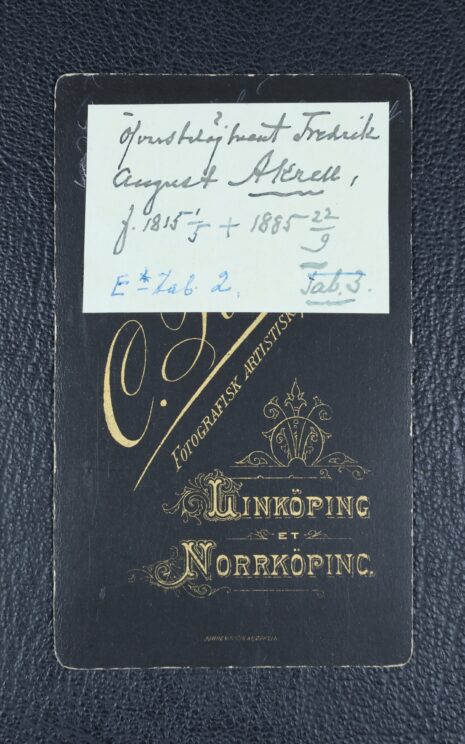 Öfverstelöjtnant Fredrik
August Akrell,
f. 1815 1/5 + 1885 22/9
Tab. 2. Tab. 3.
C.
FOTOGRAFISK ARTISTISK
LINKÖPING
ET
NORRKÖPING.